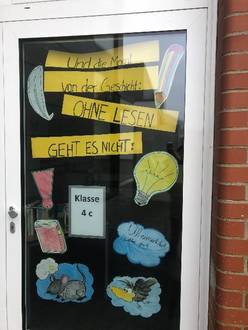 Und die Moral
von der Geschicht:
OHNE LESEN
GEHT ES NICHT!
Klasse
4 c